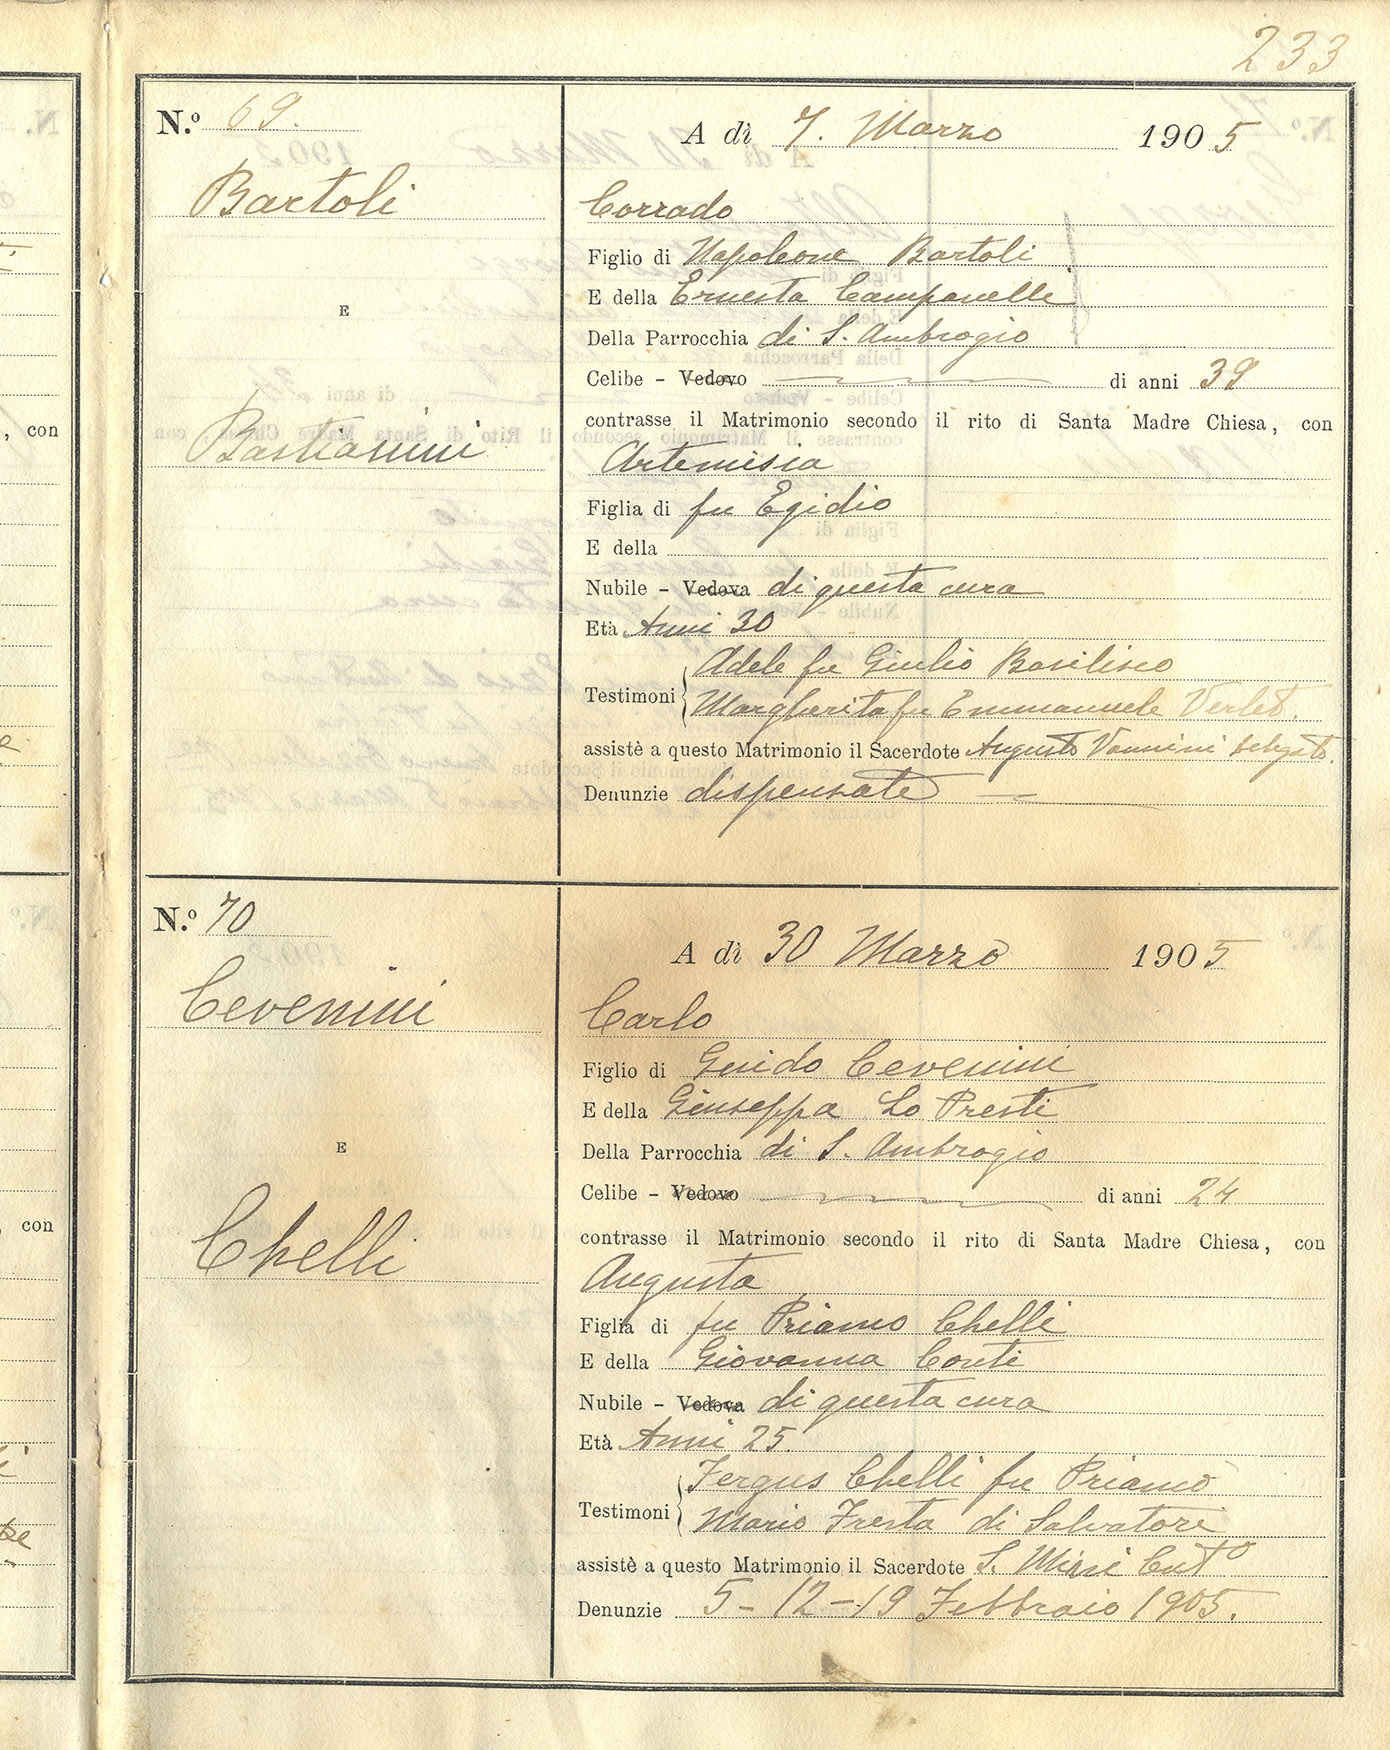 233
N.o 69.
Bartoli
E
Bastianini
A dì 7. Marzo 1905
Corrado
Figlio di Napoleone Bartoli
E della Ernesta Campanelli
Della Parrocchia di S. Ambrogio
Celibe - Vedovo di anni 39
contrasse il Matrimonio secondo il rito di Santa Madre Chiesa, con
Artemisia
Figlia di fu Egidio
E della
Nubile - Vedova di questa cura
Età Anni 30
Adele fu Giulio Basilisco
Testimoni
Margherita fu Emmanuele
assistè a questo Matrimonio il Sacerdote Augusto Vannini delegato.
Denunzie dispensate
N.o 70
Cevenini
E
Chelli
A dì 30 Marzo 1905
Carlo
Figlio di Guido Cevenini
E della Giuseppa Lo Presti
Della Parrocchia di S. Ambrogio
Celibe - Vedovo di anni 24
contrasse il Matrimonio secondo il rito di Santa Madre Chiesa, con
Augusta
Figlia di fu Priamo Chelli
E della Giovanna Conti
Nubile - Vedova di questa cura
Età Anni 25.
Fergus Chelli fu Priamo
Testimoni
Mario Fresta di Salvatore
assistè a questo Matrimonio il Sacerdote S.
Denunzie 5-12-19 Febbraio 1905.
, con
, con